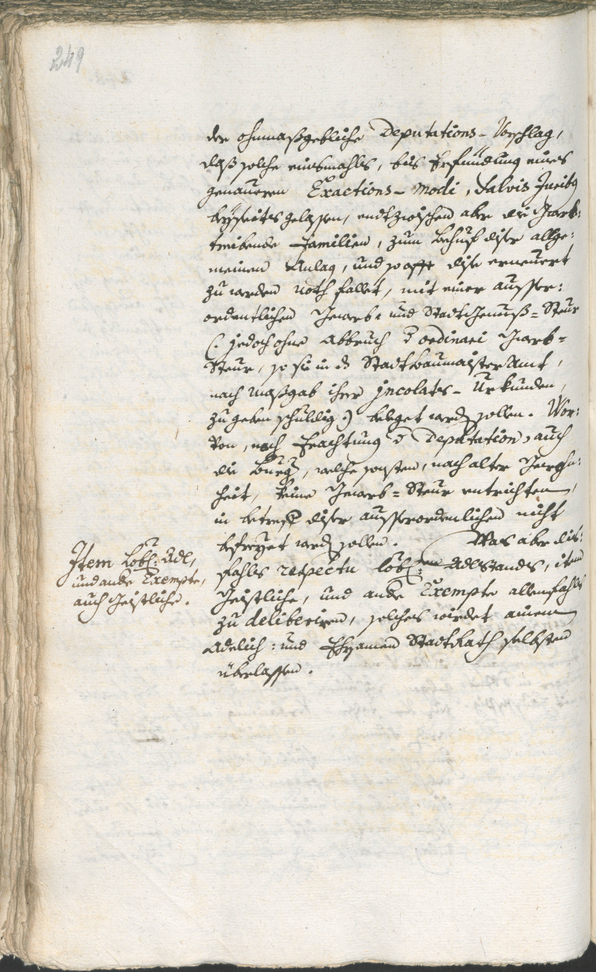 249
der ohnmaßgebliche Deputations-Vorschlag,
daß solche einsmahls, bis Erfindung eines
genaueren Exactions-modi, Salvis
beyseits gelassen, entzwischen aber die Gwerb:
treibende Familien, zum Behuf diser allge:
meinen Anlag, und so offt dise erneuert
zu werden noth fallet, mit einer ausser:
ordentlichen Gwerb: und Stadtgenuß=Steur
(: jedoch ohne Abbruch d ordinari Gwerb=
Steur, so sie in ds Stadtbaumaister Amt,
nach Maßgab ihrer Incolats-Urkunden,
zu geben schuldig :) beleget werden sollen. Wor:
von, nach Erachtung d Deputation, auch
die Burger, welche sonsten, nach alter Gewohn:
heit, keine Gwerb=Steur entrichten,
in betreff diser ausserordentlichen nicht
befreyet werden sollen. Was aber dis:
fahls respectu löbl: Adlstands, item
Geistliche, und ande Exempte allenfahls
zu deliberiren, solches wirdet einem
Adelich: und Ehrsamen StadtRath selbsten
überlassen.
Item Löbl: Adl,
und ande Exempte,
auch Geistliche.